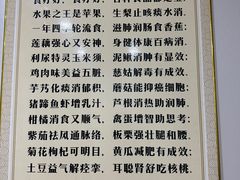 水果之王是苹果，生梨止咳痰水消。
一年四季轮流食，滋肺润肠食香蕉；
莲藕强心又安神，身健体康百病消。
利尿特灵玉米须，泥鳅消肿有显效；
鸡肉味美益五脏，慈姑解毒有成效。
芋艿化痰消郁积，蘑菇能抑癌细胞；
猪蹄鱼虾增乳汁，芦根消热助润肺，
柑橘消食又顺气，禽蛋增智助思考；
紫茄祛风通脉络，板栗强壮腿和腰，
菊花枸杞可明目，黄瓜减肥有成效；
土豆益气解痉挛，耳聪肾舒吃核桃，